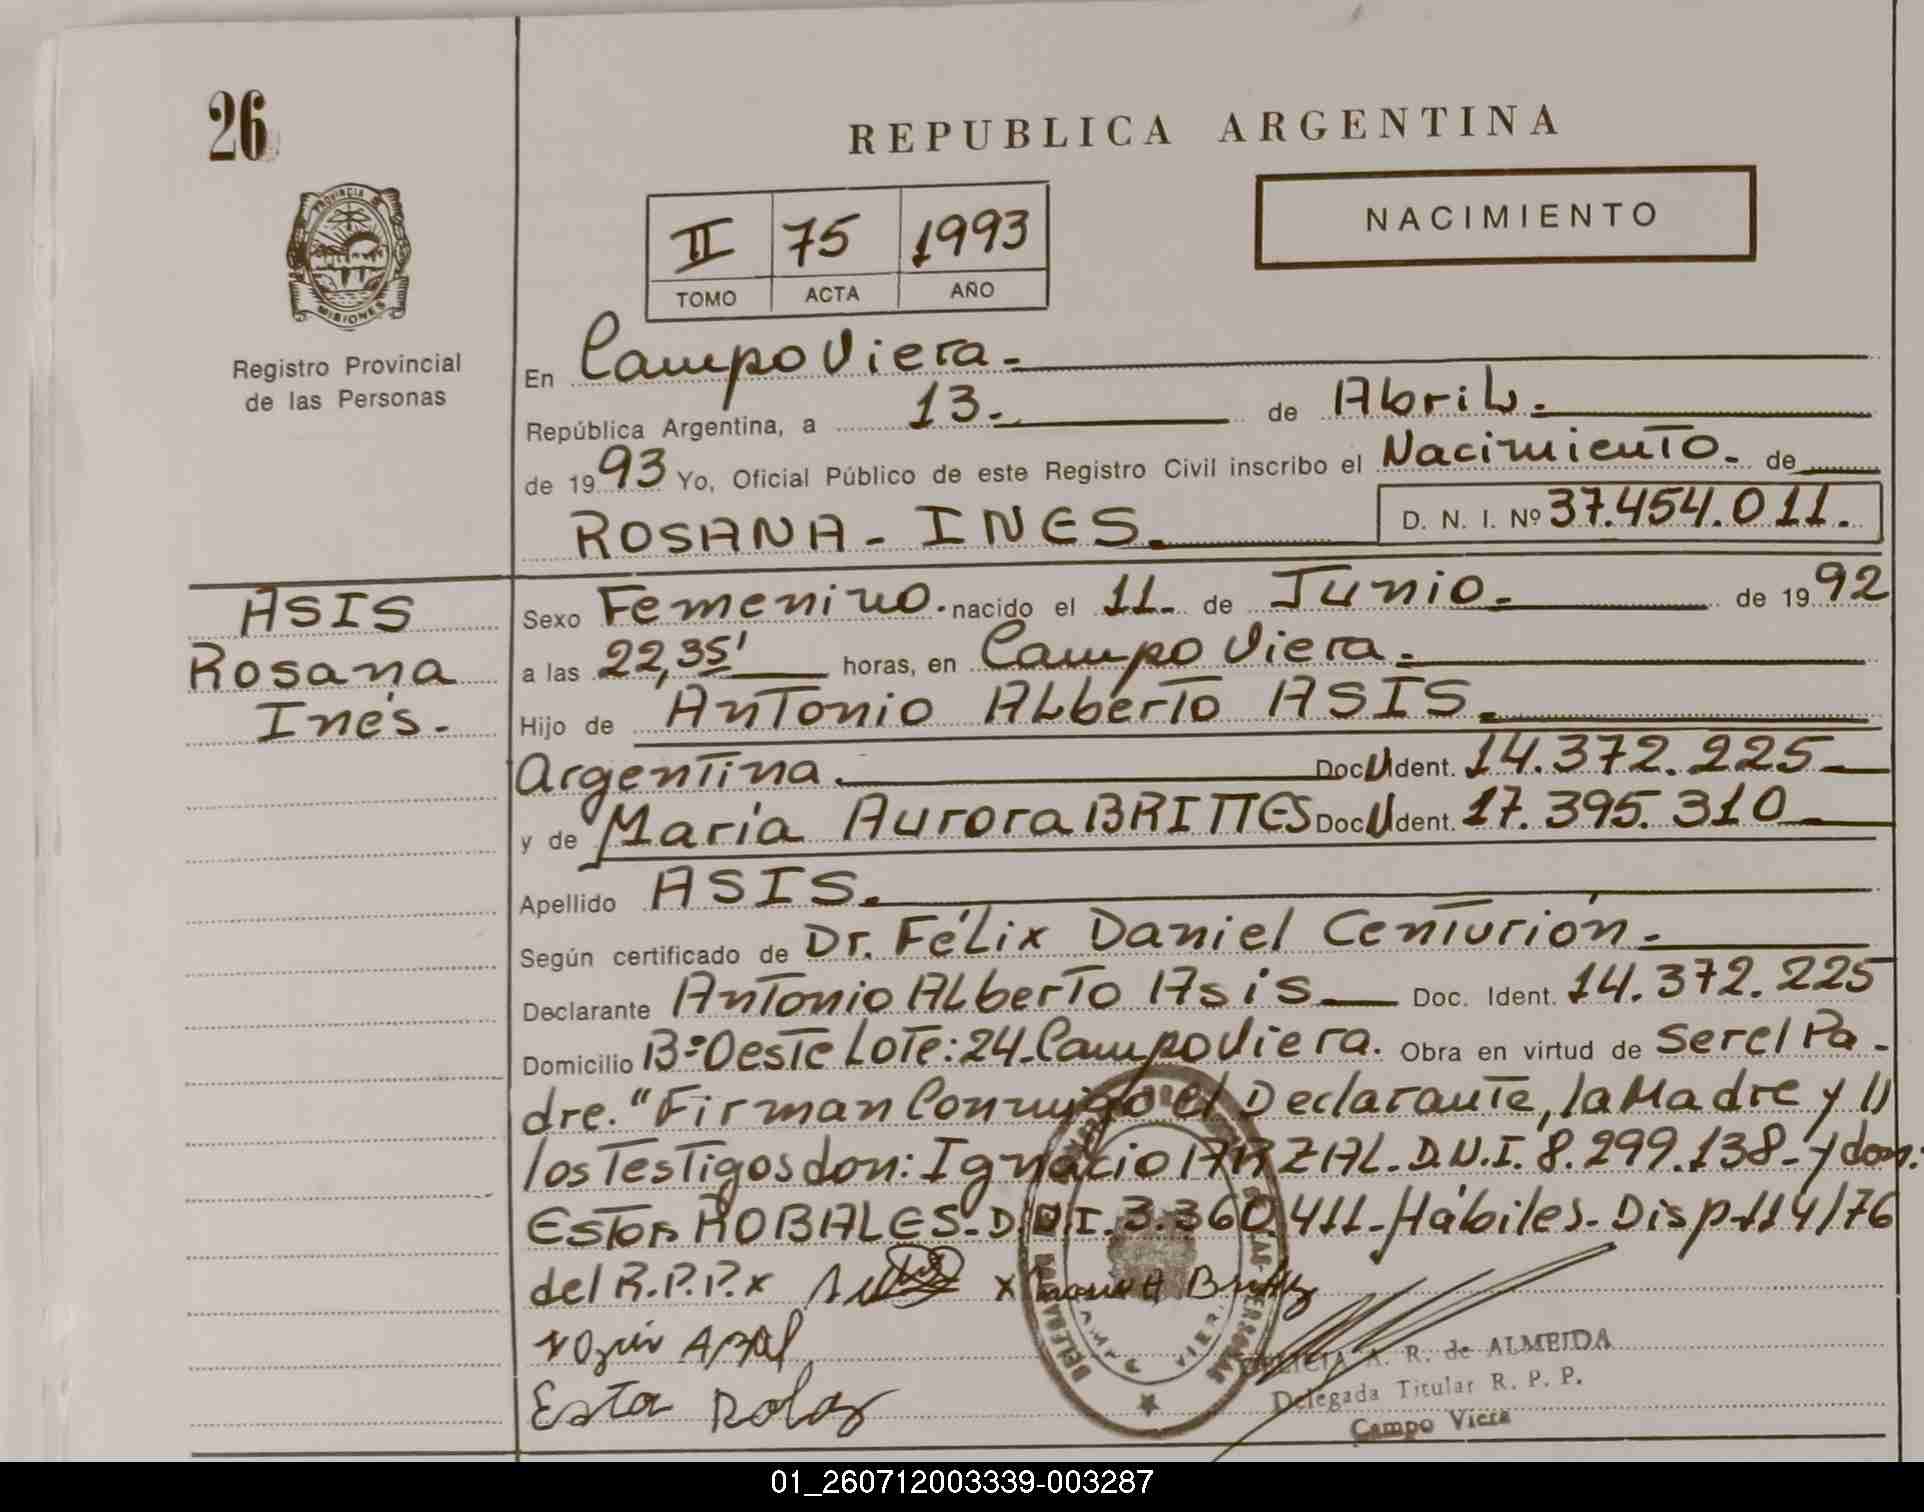 26
REPUBLICA ARGENTINA
NACIMIENTO
II 75 1993
TOMO ACTA AÑO
PROVINCIA DE
MISIONES
Registro Provincial
de las Personas
En Campo Viera.
República Argentina, a 13. de Abril.
de 1993 Yo, Oficial Público de este Registro Civil inscribo el Nacimiento. de
ROSANA - INES. D. N. I. Nº 37.454.011.
ASIS
Rosana
Inés.
Sexo Femenino. nacido el 11. de Junio. de 1992
a las 22,35' horas, en Campo Viera.
Hijo de Antonio Alberto ASIS.
Argentina. Doc. Ident. 14.372.225
y de María Aurora BRITTES Doc. Ident. 17.395.310
Apellido ASIS.
Según certificado de Dr. Félix Daniel Centurión.
Declarante Antonio Alberto Asis Doc. Ident. 14.372.225
Domicilio Bº Oeste Lote: 24. Campo Viera. Obra en virtud de ser el Pa-
dre. "Firman Conmigo el Declarante, la Madre y
los Testigos don: Ignacio ARZAL. D.N.I. 8.299.138 - y don:
D.N.I. 3.360.411 - Hábiles. Disp. 114/76
del R.P.P. x
A. R. de ALMEIDA
Delegada Titular R. P. P.
Campo Viera
01_260712003339-003287